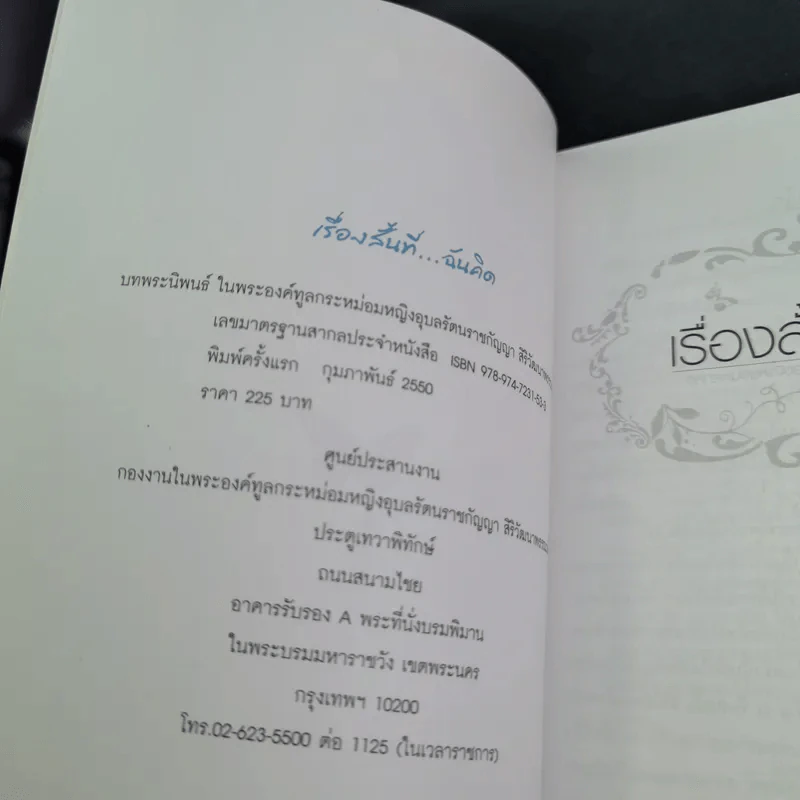 เรื่องสั้นที่...ฉันคิด
บทพระนิพนธ์ ในพระองค์ทูลกระหม่อมหญิงอุบลรัตนราชกัญญา สิริวัฒนาพรรณ
เลขมาตรฐานสากลประจำหนังสือ ISBN 978-974-7231-53-5
พิมพ์ครั้งแรก กุมภาพันธ์ 2550
ราคา 225 บาท
ศูนย์ประสานงาน
กองงานในพระองค์ทูลกระหม่อมหญิงอุบลรัตนราชกัญญา สิริวัฒนาพรรณ
ประตูเทวาพิทักษ์
ถนนสนามไชย
อาคารรับรอง A พระที่นั่งบรมพิมาน
ในพระบรมมหาราชวัง เขตพระนคร
กรุงเทพฯ 10200
โทร.02-623-5500 ต่อ 1125 (ในเวลาราชการ)
เรื่องสั้